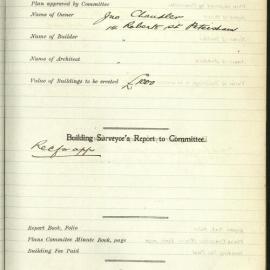 Plan approved by Committee
Name of Owner Jno Chandler
14 Roberts St Petersham
Name of Builder "
Name of Architect "
Value of Buildings to be erected £1000
Building Surveyor's Report to Committee.
Rec for app
Report Book, Folio
Plans Committee Minute Book, page
Building Fee Paid